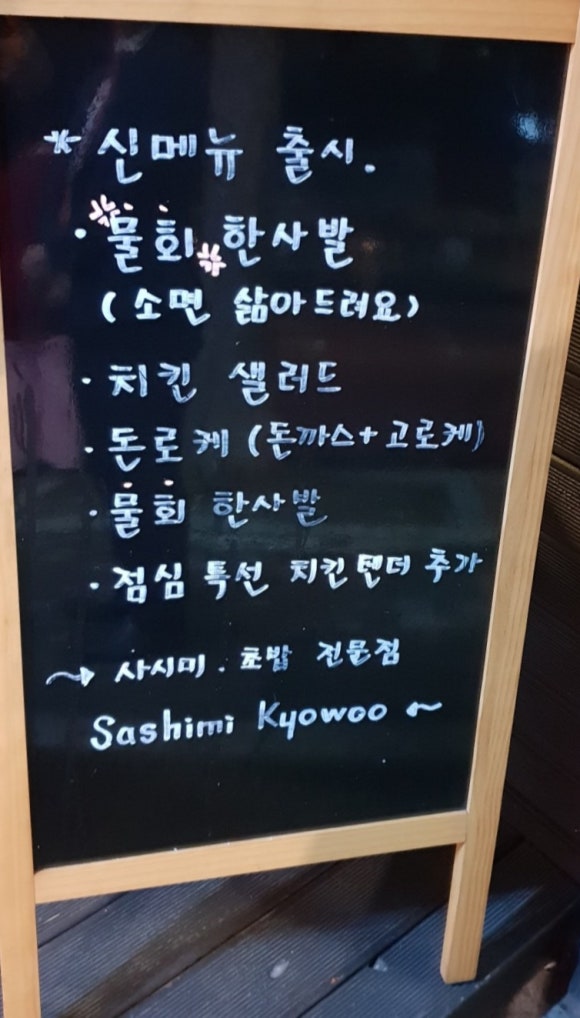 * 신메뉴 출시.
· 물회 한사발
( 소면 삶아드려요)
· 치킨 샐러드
· 돈로케 (돈까스+고로케)
· 물회 한사발
· 점심 특선 치킨텐더 추가
~> 사시미 . 초밥 전문점
Sashimi Kyowoo ~